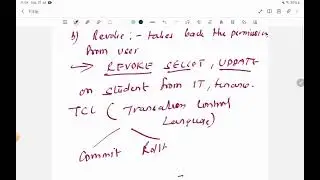 b) Revoke :- takes back the permission
from user
→ REVOKE SELECT, UPDATE
on student from IT, finance.
TCL ( Transaction Control
Language)
Commit Roll